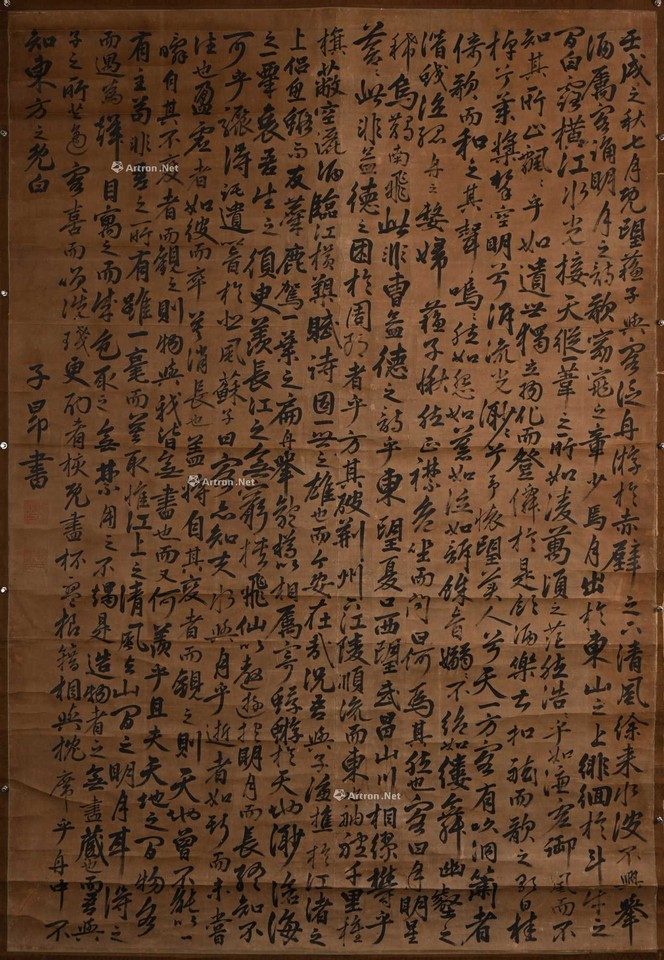 壬戌之秋七月既望蘇子與客泛舟游於赤壁之下清風徐來水波不興舉
酒屬客誦明月之詩歌窈窕之章少焉月出於東山之上徘徊於斗牛之
間白露橫江水光接天縱一葦之所如凌萬頃之茫然浩浩乎如馮虛御風而不
知其所止飄飄乎如遺世獨立羽化而登仙於是飲酒樂甚扣舷而歌之歌曰桂
棹兮蘭槳擊空明兮泝流光渺渺兮予懷望美人兮天一方客有吹洞簫者
倚歌而和之其聲嗚嗚然如怨如慕如泣如訴餘音嫋嫋不絕如縷舞幽壑之
潛蛟泣孤舟之嫠婦蘇子愀然正襟危坐而問曰何為其然也客曰月明星
稀烏鵲南飛此非曹孟德之詩乎東望夏口西望武昌山川相繆鬱乎
蒼蒼此非孟德之困於周郎者乎方其破荊州下江陵順流而東舳艫千里旌
旗蔽空釃酒臨江橫槊賦詩固一世之雄也而今安在哉況吾與子漁樵於江渚之
上侶魚蝦而友麋鹿駕一葉之扁舟舉匏樽以相屬寄蜉蝣於天地渺滄海
之一粟哀吾生之須臾羨長江之無窮挾飛仙以遨遊抱明月而長終知不
可乎驟得託遺響於悲風蘇子曰客亦知夫水與月乎逝者如斯而未嘗
往也盈虛者如彼而卒莫消長也蓋將自其變者而觀之則天地曾不能以一
瞬自其不變者而觀之則物與我皆無盡也而又何羨乎且夫天地之間物各
有主苟非吾之所有雖一毫而莫取惟江上之清風與山間之明月耳得之
而遇為聲目寓之而成色取之無禁用之不竭是造物者之無盡藏也而吾與
子之所共適客喜而笑洗盞更酌肴核既盡杯盤狼籍相與枕藉乎舟中不
知東方之既白 子昂書
Artron.Net
Artron.Net
Artron.Net
Artron.Net